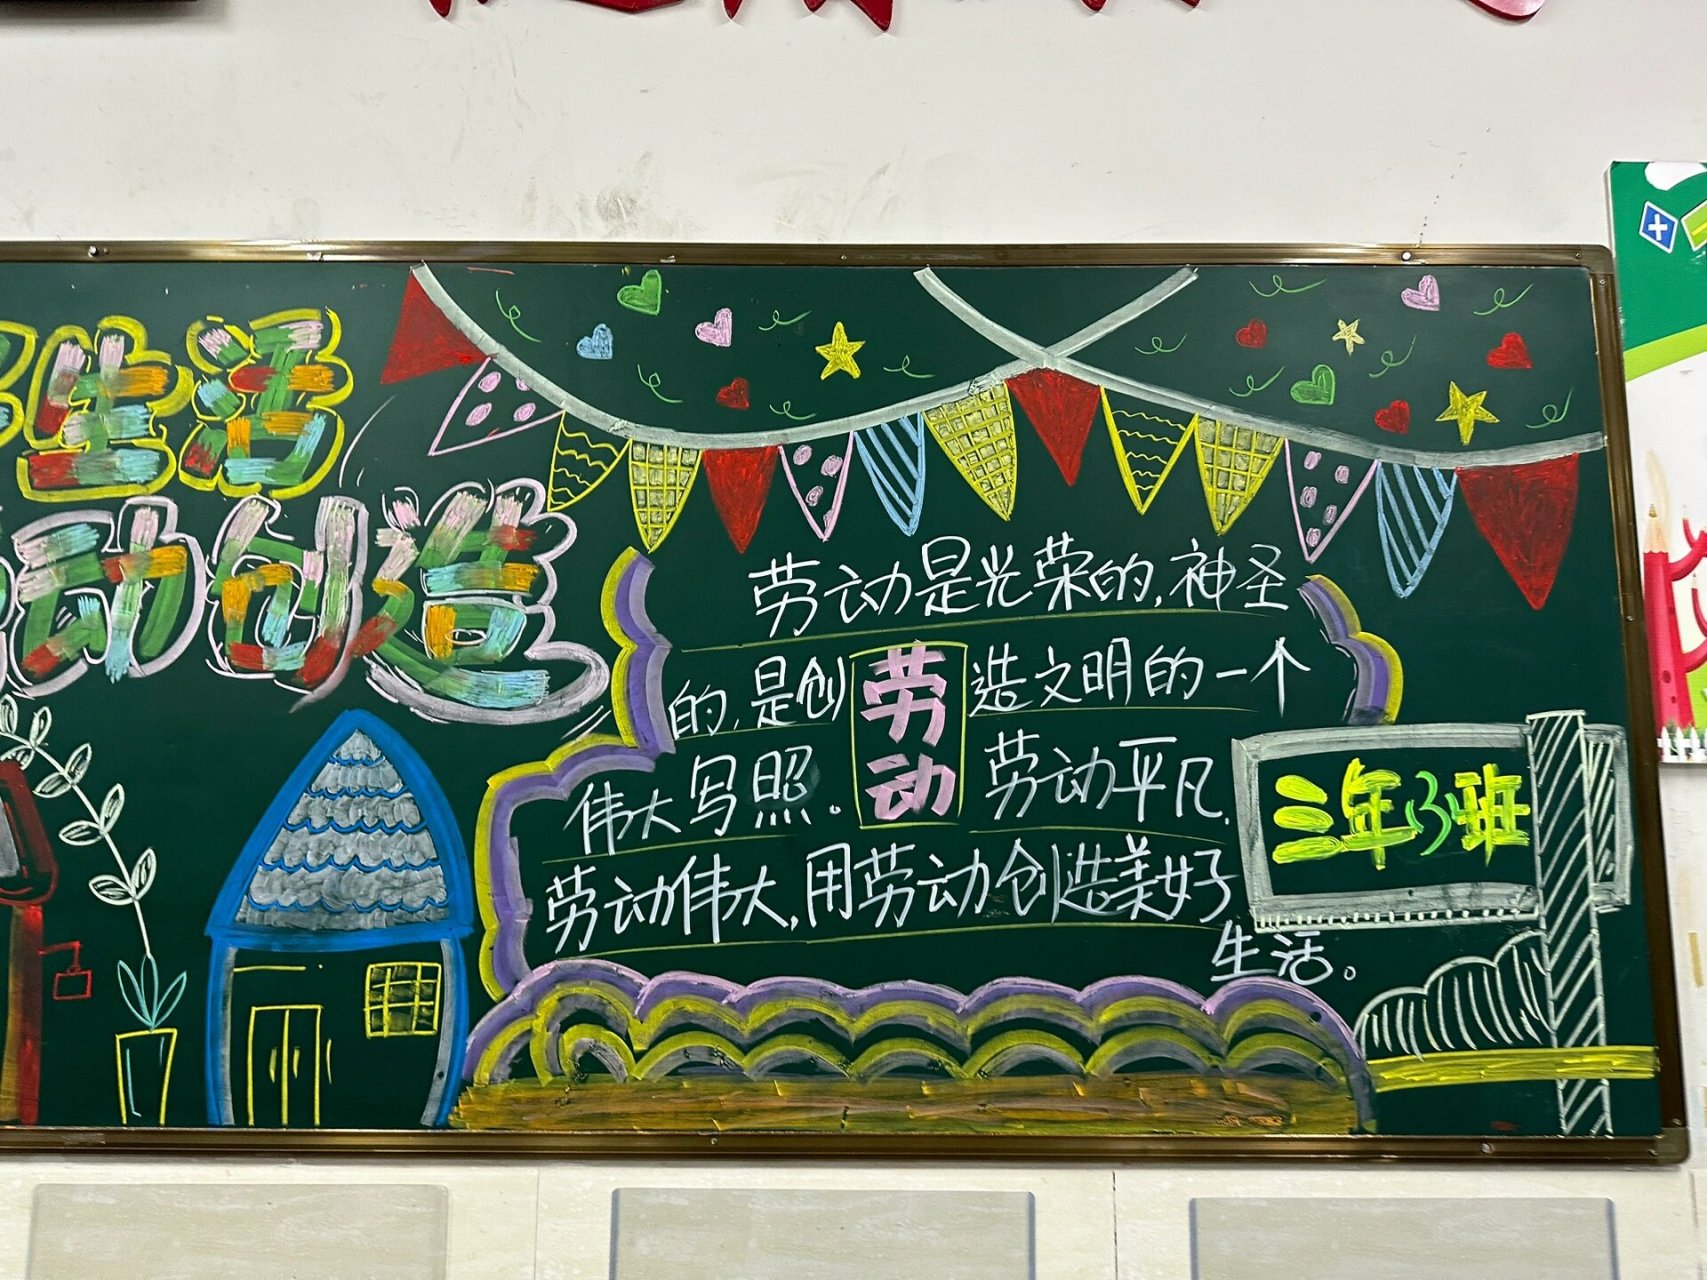 生活
动创造
劳动是光荣的,神圣
的,是创造文明的一个
伟大写照。劳动平凡.
劳动伟大,用劳动创造美好
生活。
劳动
三年(3)班